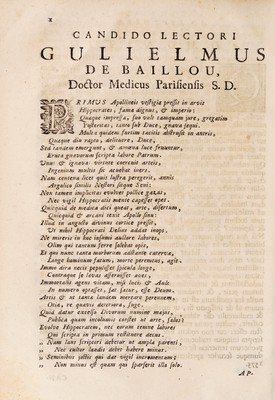 x
CANDIDO LECTORI
GULIELMUS
DE BAILLOU,
Doctor Medicus Parisiensis S. D.
PRIMUS Apollineis vestigia pressit in arvis
Hippocrates, fama dignus, & imperio:
Quaque impressa, suo velt tamquam jure, gregatim
Posteritas, tanto sub Duce, gnava sequi.
Multa quidem furtim tacitis abstrusit in antris,
Quaque diu rapto, delituere, Duce,
Sed tandem emergunt, & arcana luce fruuntur,
Eruta gnavorum scripta labore Patrum.
Una: & ignava: vivente coercuit artels,
Ingenium multis sic acuebat iners.
Nam centena licet quis lustra peregerit, annis
Argolico similis Nestore sicque Seni:
Non tamen implicitas evolvet pollice gazas,
Nec vigil Hippocratis mente capesset opes.
Quicquid de medica dici queat, arte, disertum,
Quicquid & arcani texit Apollo sinu:
Illud in angusto divinus cortice pressit,
Ut nihil Hippocrati Delius addat inops.
Ne moreris in hoc insumi aullore labores,
Olim qui tantum ferre solebat opis,
Et qui nunc tanta morborum adstante caterva,
Lurge hominum fatum, morte peremtus, agit.
Immo dira necis pepulisset spicula longe,
Contraque se lavas asseruisset aves.
Immortalis agens vitam, nisi lucis & Aulæ
In numero optasset, sat satur, esse Deum.
Artis & ut tanta tandem moerore peremtem,
Otia, re quavis deteriora, fuge.
Quid datur excelso Divorum nuncine majus,
Publica quam incolumis constet ut arte, salus?
Evolvo Hippocratem, nec eorum tenuve labores
Qui scripta in primum restituere decus.
„ Nam tam scriptori debetur ut ampla parenti,
„ Nec cultor laudis debet habere minus.
„ Seminibus jactis qui dat vigil incrementum:
„ Non minus est quam qui sparserit illa solo.
AP-